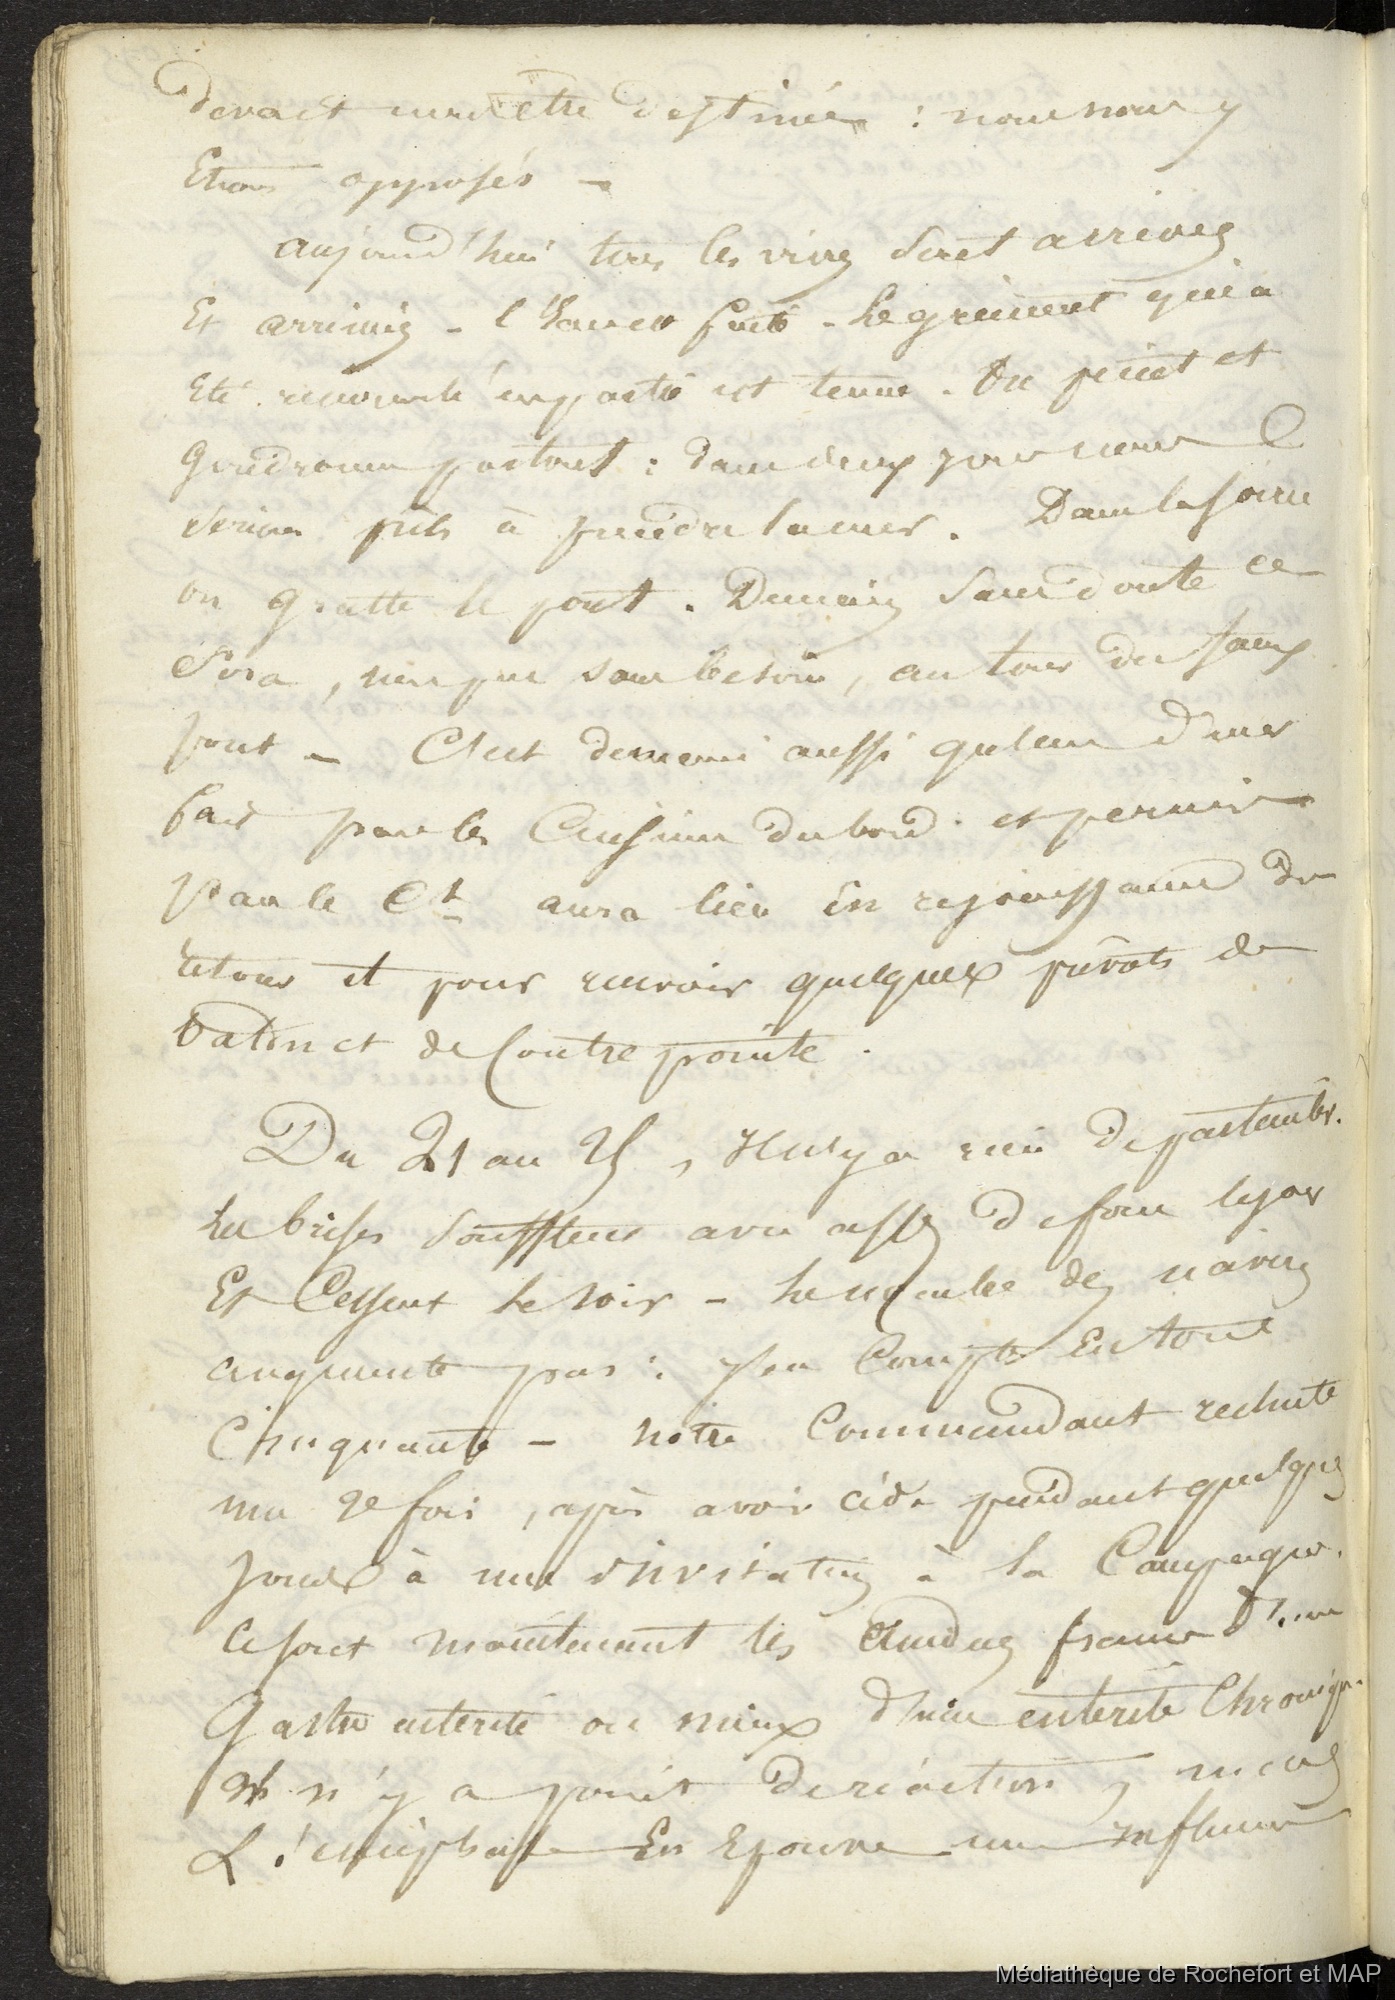 devait nous être destinée : nous nous y
Etions opposés -
aujourd'hui tous les vivres sont arrivés
Et arrimés - l'eau est faite - Le gréement qui a
Eté renouvelé en partie est tenu. On peint et
Goudronne partout : dans deux jours nous
serions prêts à prendre la mer. Dans la soirée
on gratte le pont. Demain sans doute ce
sera, presque sans besoin, au tour du faux
pont - C'est demain aussi qu'un diner
fait par les Cuisines du bord et permis
par le Ct aura lieu En rejouissance du
retour et pour recevoir quelques prévots de
baton et de Contre pointe.
Du 21 au 25, Il n'y a rien de particulier.
Les brises soufflent avec assez de force le jour
Et Cessent le soir - Le nombre des navires
augmente pas : j'en Compte En tout
Cinquante - notre Commandant rechute
une 2e fois, après avoir cédé pendant quelques
jours à une invitation à la Campagne.
Ce sont maintenant les francs d'une
Gastro entérite ou mieux d'une entérite Chronique.
Il n'y a point de réaction, mais
L'encéphale En Eprouve une Influence
Médiathèque de Rochefort et MAP